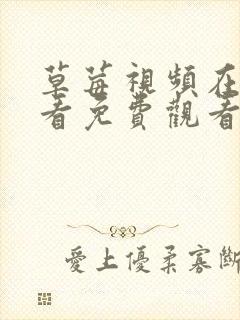 草莓視頻在
看免費觀看
愛上優柔寡斷